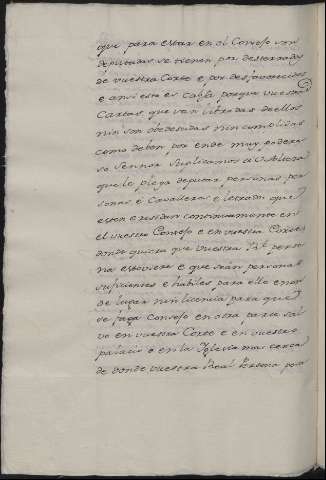 que para estar en el Consejo son
deputados se tienen por desterrados
de vuestra Corte e por desfavorecidos
e ansi esta es cabsa porque vuestras
Cartas, que van libradas dellos
nin son obedescidas nin complidas
como deben por ende muy poderos
so Sennor suplicamos a V. Alteza
que le plega deputar personas per
sonas, e Cavalleros e letrados que
esten e residan continuamente en
el vuestro Consejo e en vuestra Corte
donde quiera que vuestra Rl. perso
na estoviere e que sean personas
suficientes e habiles para ello e non
de lugar nin licencia para que
se faga Consejo en otra parte sal
vo en vuestra Corte e en vuestro
palacio o en la Iglesia mas cerca
de donde vuestra Real Persona posa